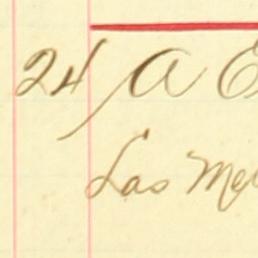 24 A E
Las Me